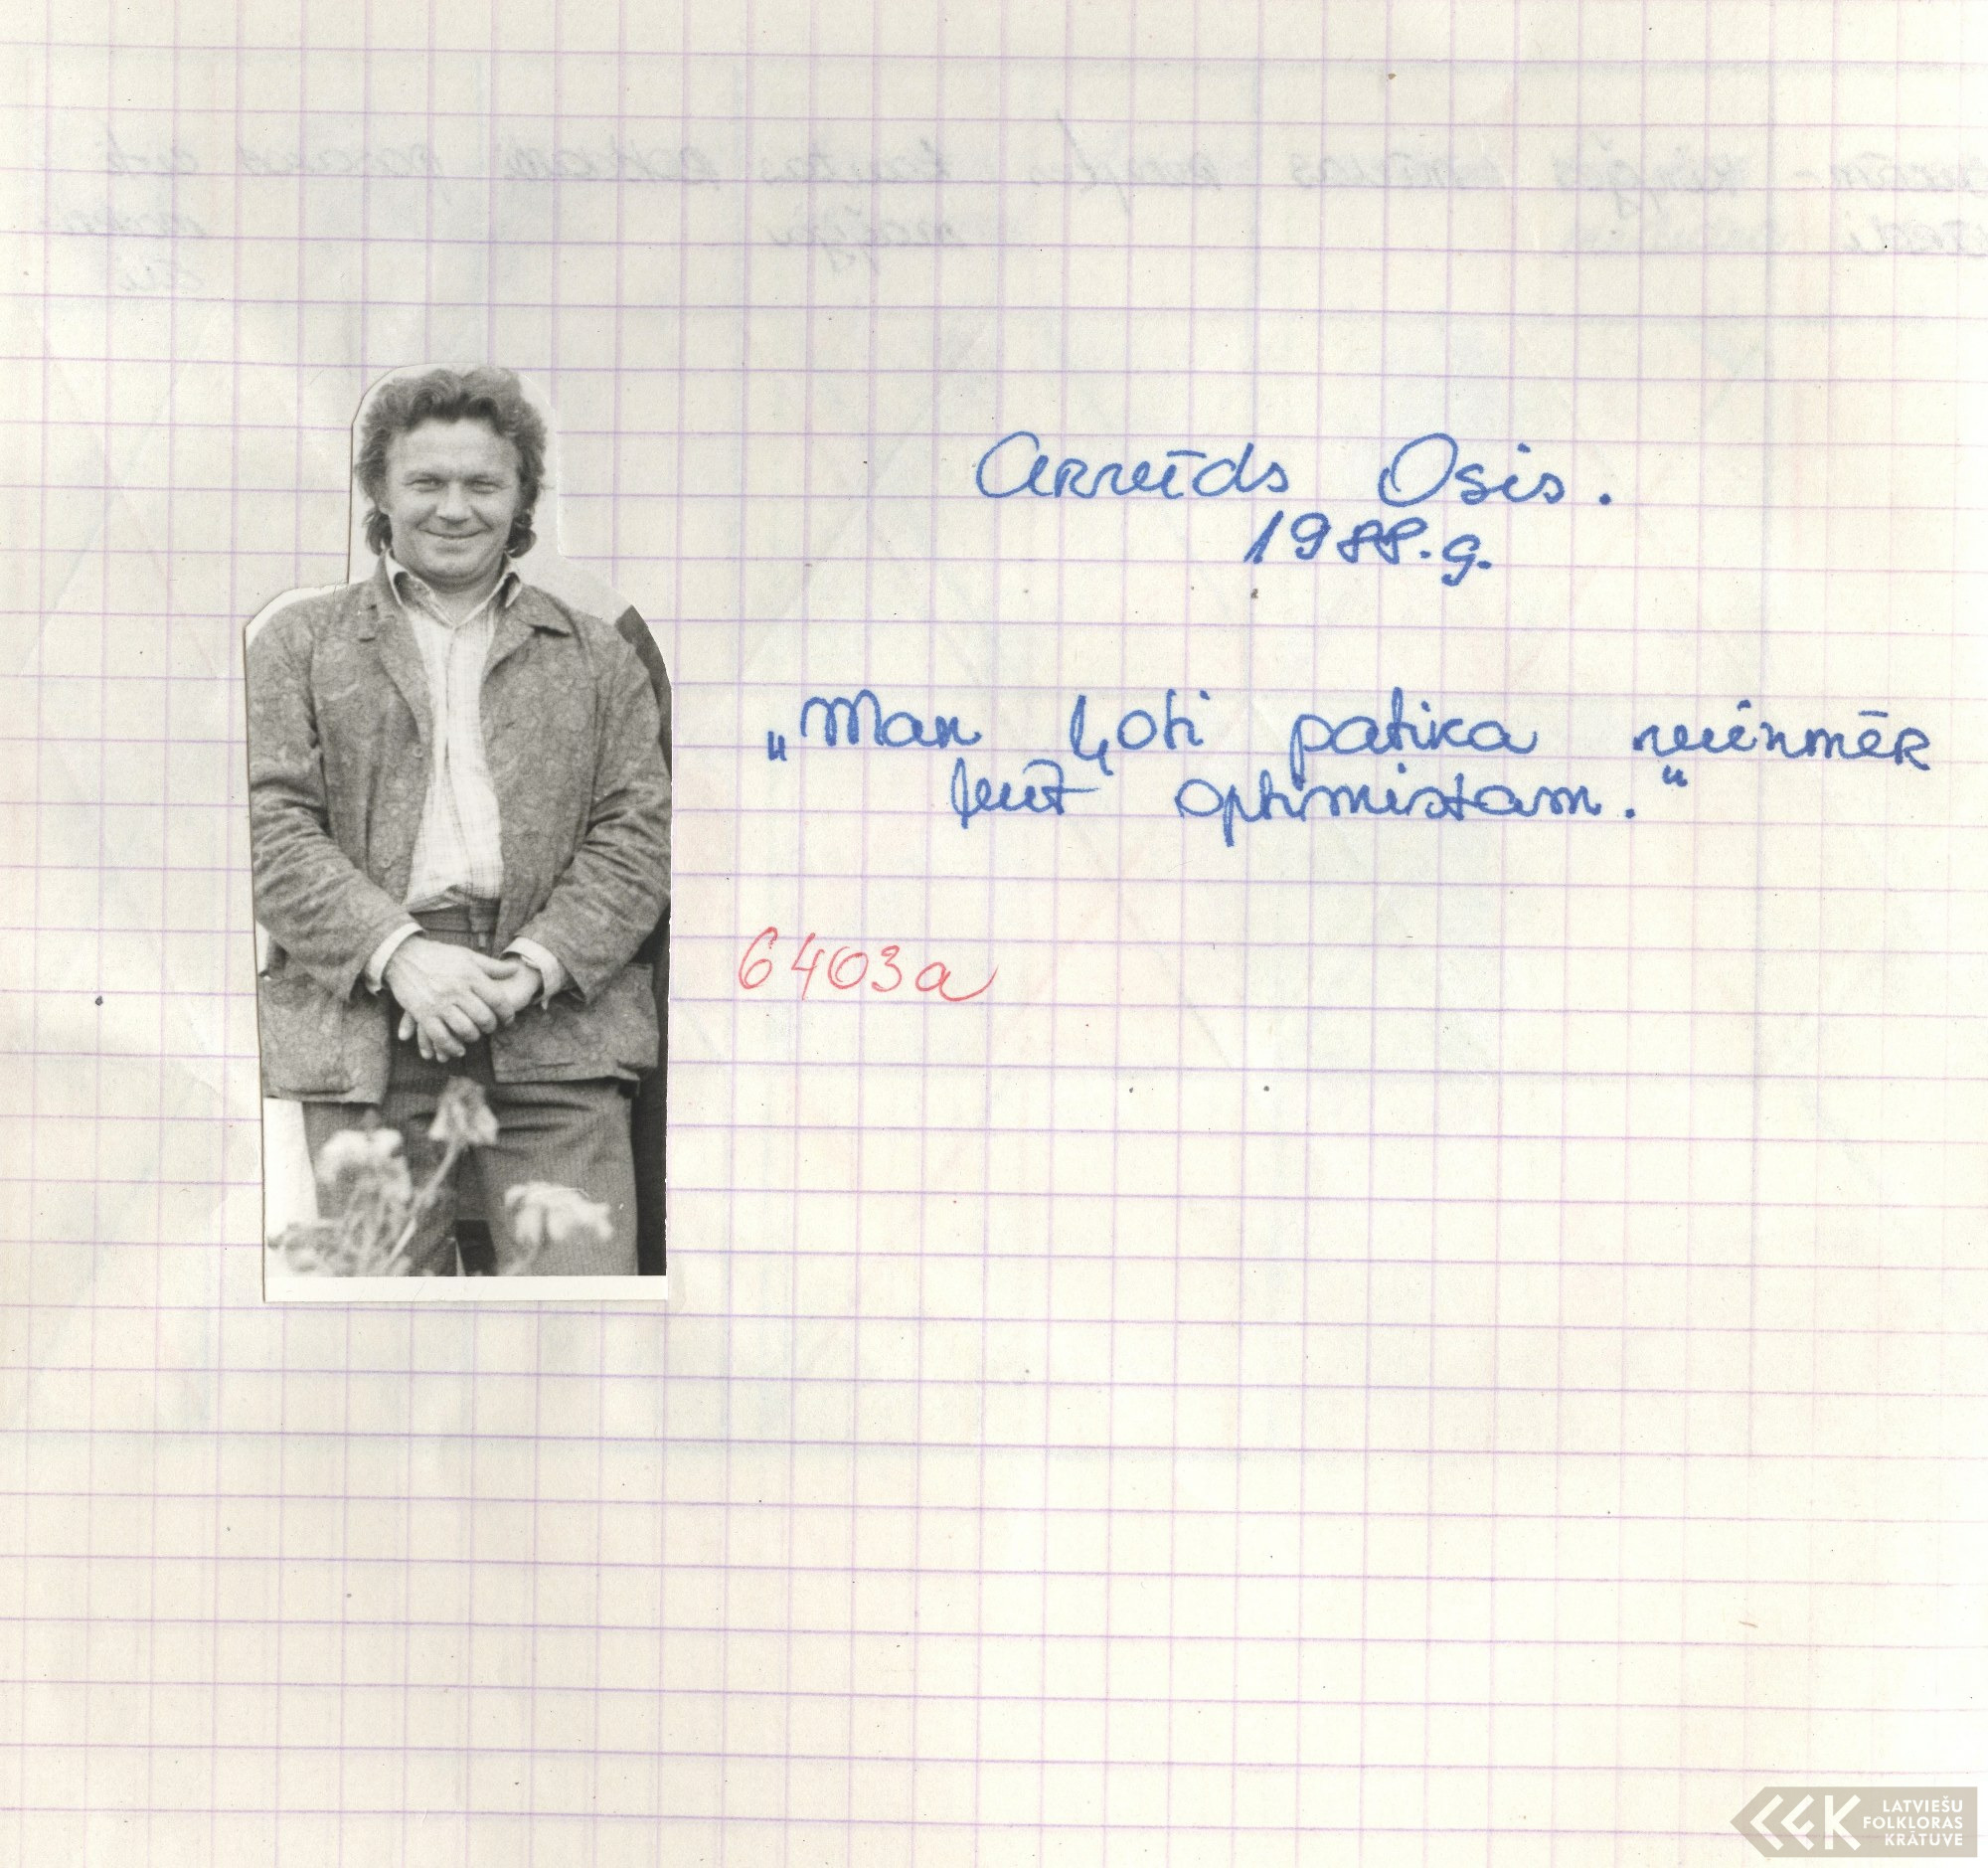 Arvīds Osis.
1988.g.
„Man ļoti patika vienmēr
būt optimistam.“
6403a
LATVIEŠU
FOLKLORAS
KRĀTUVE